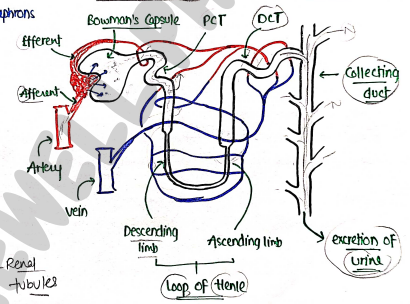 nephrons
Bowman's Capsule
PCT
DCT
Efferent
Afferent
Collecting
duct
Artery
Vein
Descending
limb
Ascending limb
excretion of
urine
Renal
tubules
Loop of Henle